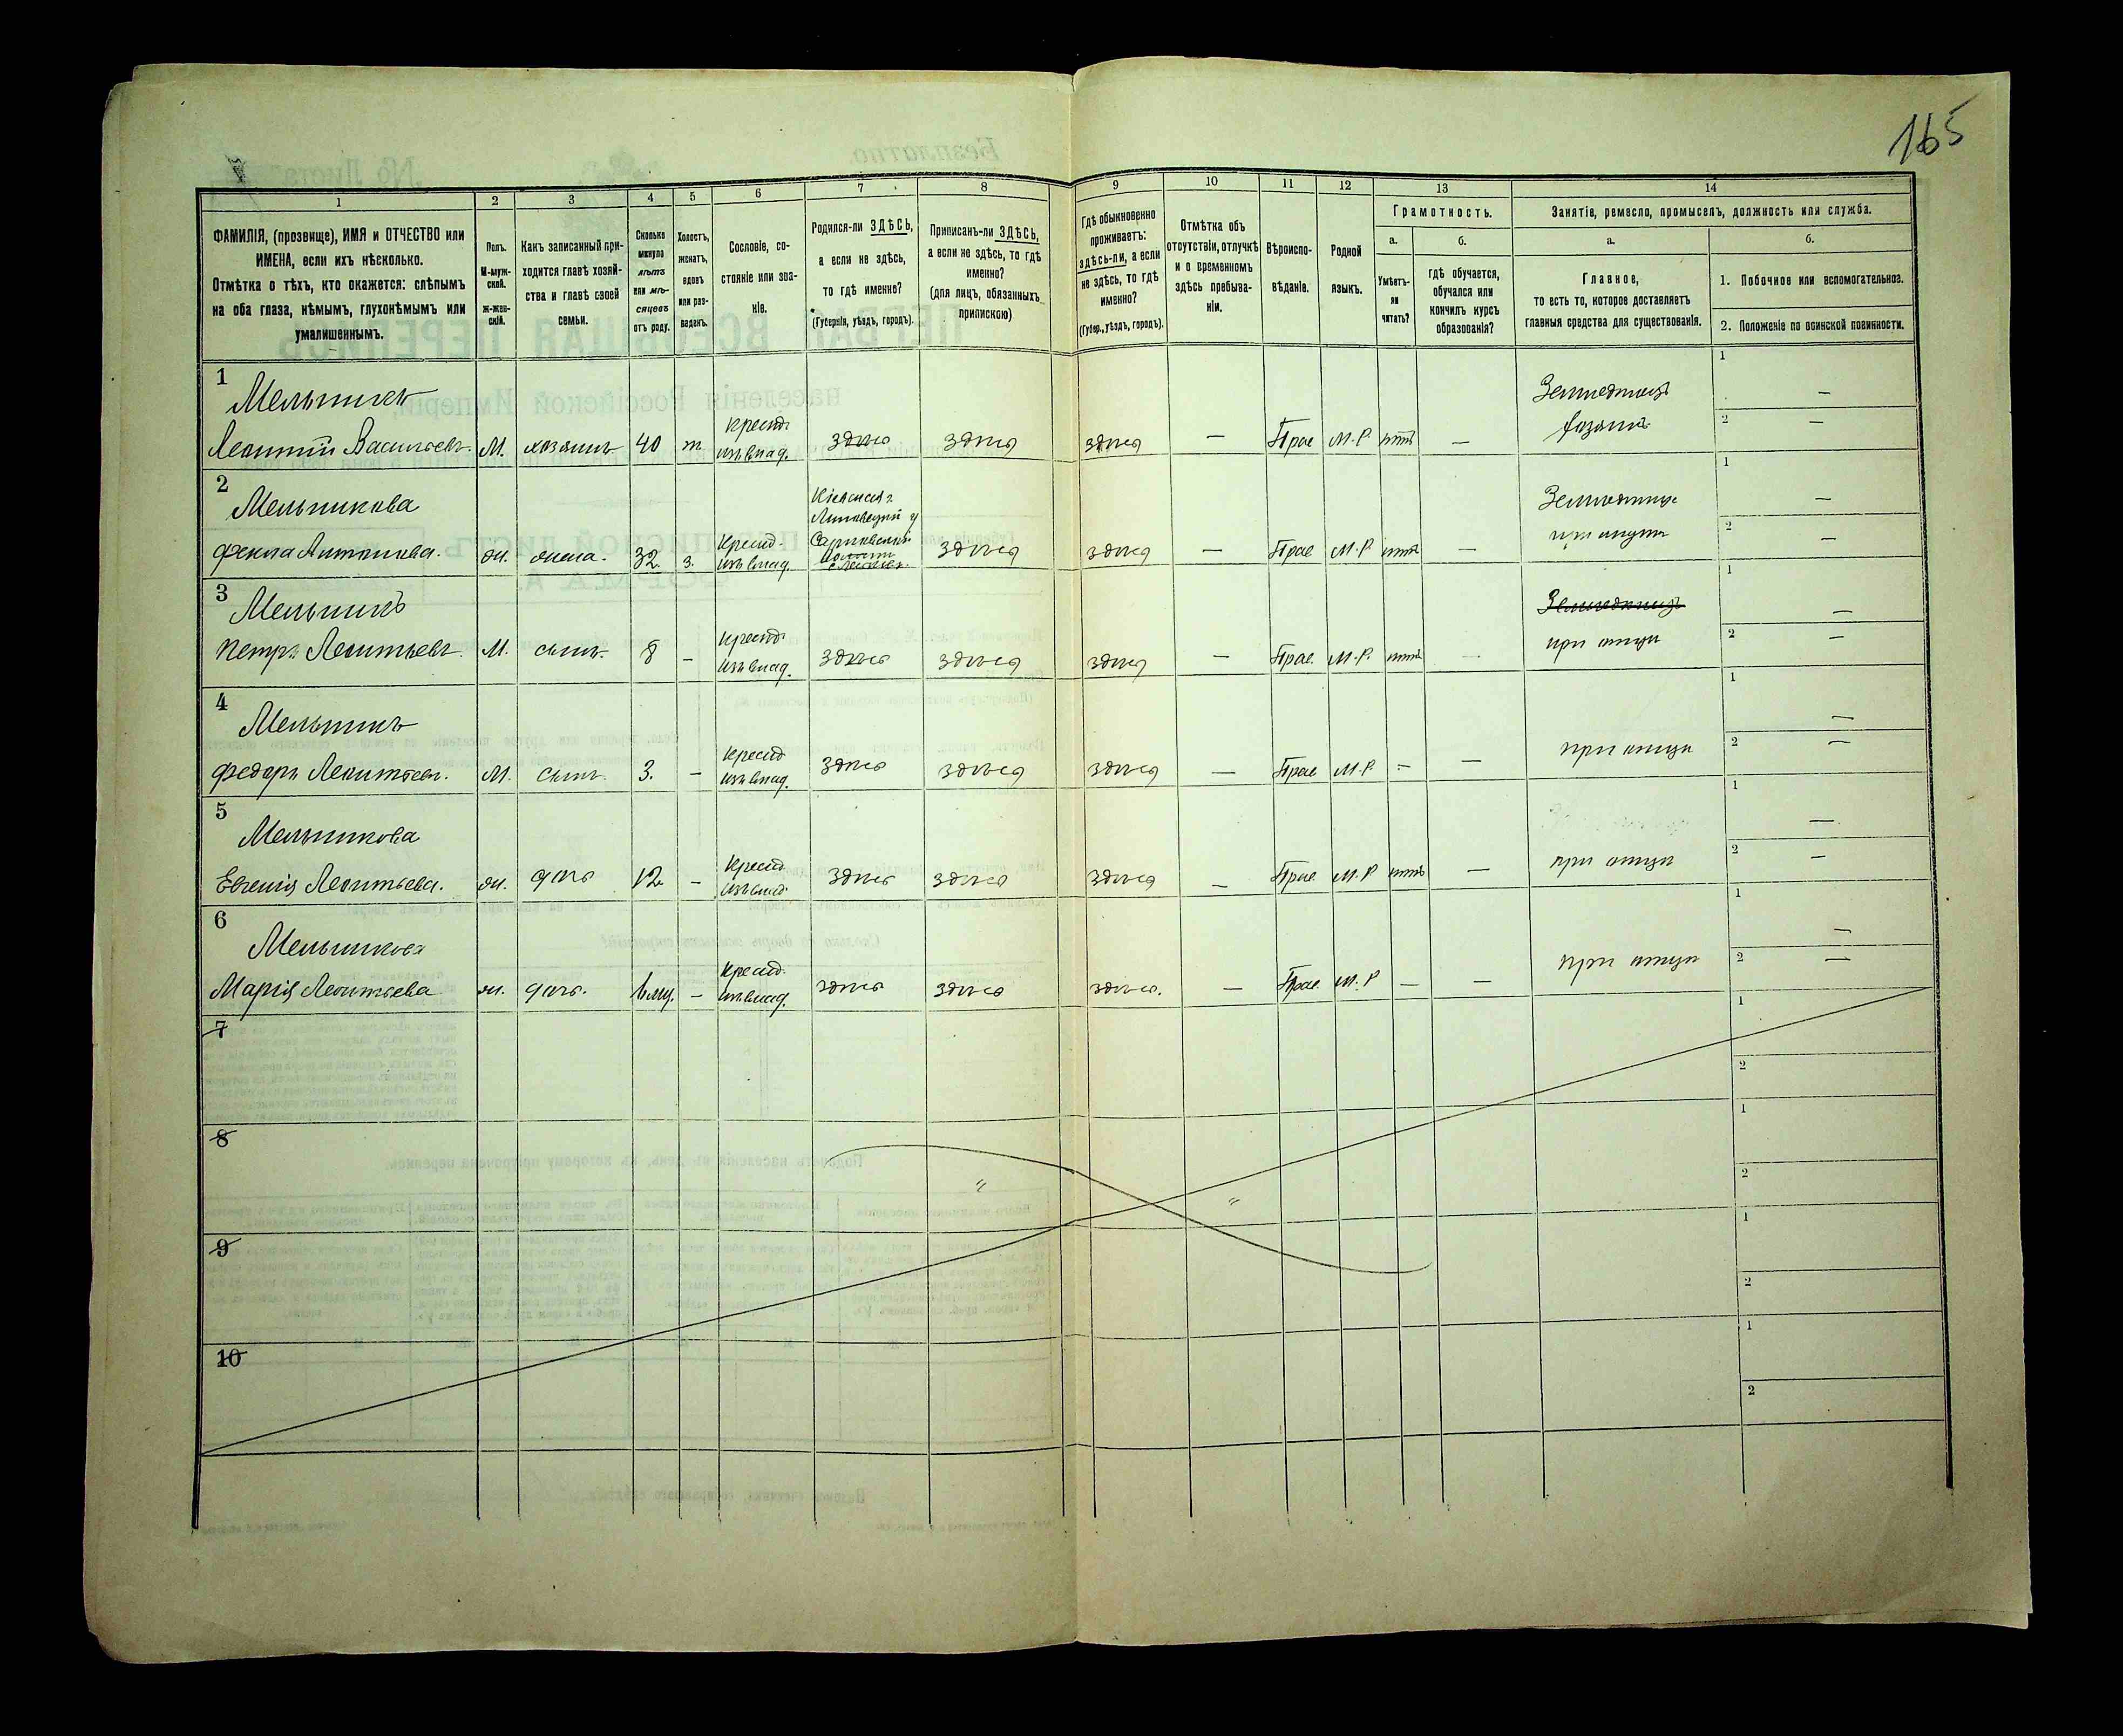 165
1 2 3 4 5 6 7 8 9 10 11 12 13 14
ФАМИЛІЯ, (прозвище), ИМЯ и ОТЧЕСТВО или
ИМЕНА, если ихъ нѣсколько.
Отмѣтка о тѣхъ, кто окажется: слѣпымъ
на оба глаза, нѣмымъ, глухонѣмымъ или
умалишеннымъ.
Полъ.
М-муж-
ской.
ж-жен-
скій.
Какъ записанный при-
ходится главѣ хозяй-
ства и главѣ своей
семьи.
Сколько
минуло
лѣтъ
или мѣ-
сяцевъ
отъ роду.
Холостъ,
женатъ,
вдовъ
или раз-
веденъ.
Сословіе, со-
стояніе или зва-
ніе.
Родился-ли ЗДѢСЬ,
а если не здѣсь,
то гдѣ именно?
(Губернія, уѣздъ, городъ).
Приписанъ-ли ЗДѢСЬ,
а если не здѣсь, то гдѣ
именно?
(для лицъ, обязанныхъ
припискою)
Гдѣ обыкновенно
проживаетъ:
здѣсь-ли, а если
не здѣсь, то гдѣ
именно?
(Губер., уѣздъ, городъ).
Отмѣтка объ
отсутствіи, отлучкѣ
и о временномъ
здѣсь пребыва-
ніи.
Вѣроиспо-
вѣданіе.
Родной
языкъ.
Грамотность.
а.
Умѣетъ-
ли
читать?
б.
гдѣ обучается,
обучался или
кончилъ курсъ
образованія?
Занятіе, ремесло, промыселъ, должность или служба.
а.
Главное,
то есть то, которое доставляетъ
главныя средства для существованія.
б.
1. Побочное или вспомогательное.
2. Положеніе по воинской повинности.
1
Мельникъ
Леонтій Васильевъ. М. хозяинъ 40 ж. крестъ. здѣсь здѣсь здѣсь — Прав М.Р. нѣтъ — Земледѣлецъ
1 —
2 —
2
Мельникова
Фекла Антонова. ж. жена. 32. з. крестъ. Кіевская г. Липовецкій у здѣсь здѣсь — Прав М.Р. нѣтъ —
1 —
2 —
3
Мельникъ
Петръ Леонтьевъ. М. сынъ. 8 — крестъ. здѣсь здѣсь здѣсь — Прав. М.Р. нѣтъ Земледѣлецъ при отцѣ
1 —
2 —
4
Мельникъ
Федоръ Леонтьевъ. М. сынъ. 3. — крестъ здѣсь здѣсь здѣсь — Прав М.Р. — — при отцѣ
1 —
2 —
5
Мельникова
Евгенія Леонтьева. ж. дочь 12 — крестъ здѣсь здѣсь здѣсь — Прав М.Р. нѣтъ — при отцѣ
1 —
2 —
6
Мельникова
Марія Леонтьева ж. дочь. — крестъ. здѣсь здѣсь здѣсь. — Прав. М.Р — — при отцѣ
1 —
2 —
7
1
2
8
1
2
9
1
2
10
1
2